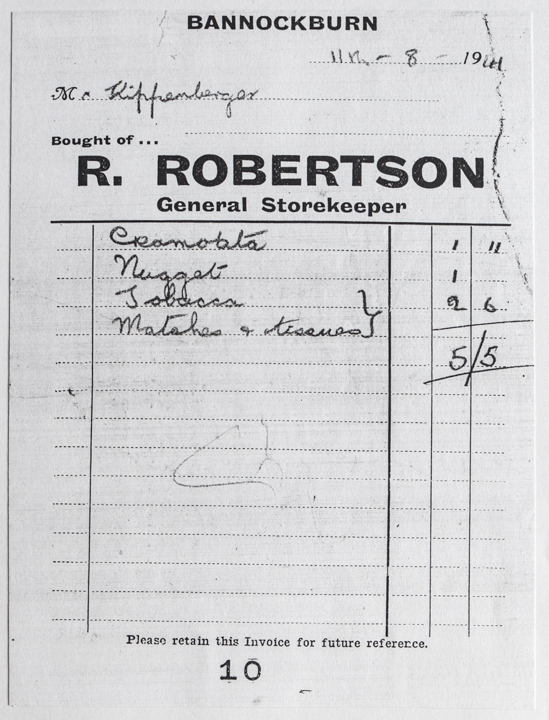 BANNOCKBURN
11th - 8 - 1944
Mr Kippenberger
Bought of ...
R. ROBERTSON
General Storekeeper
1 11
Nugget 1
Tobacco 2 6
Matches & tissues
5/5
Please retain this Invoice for future reference.
10